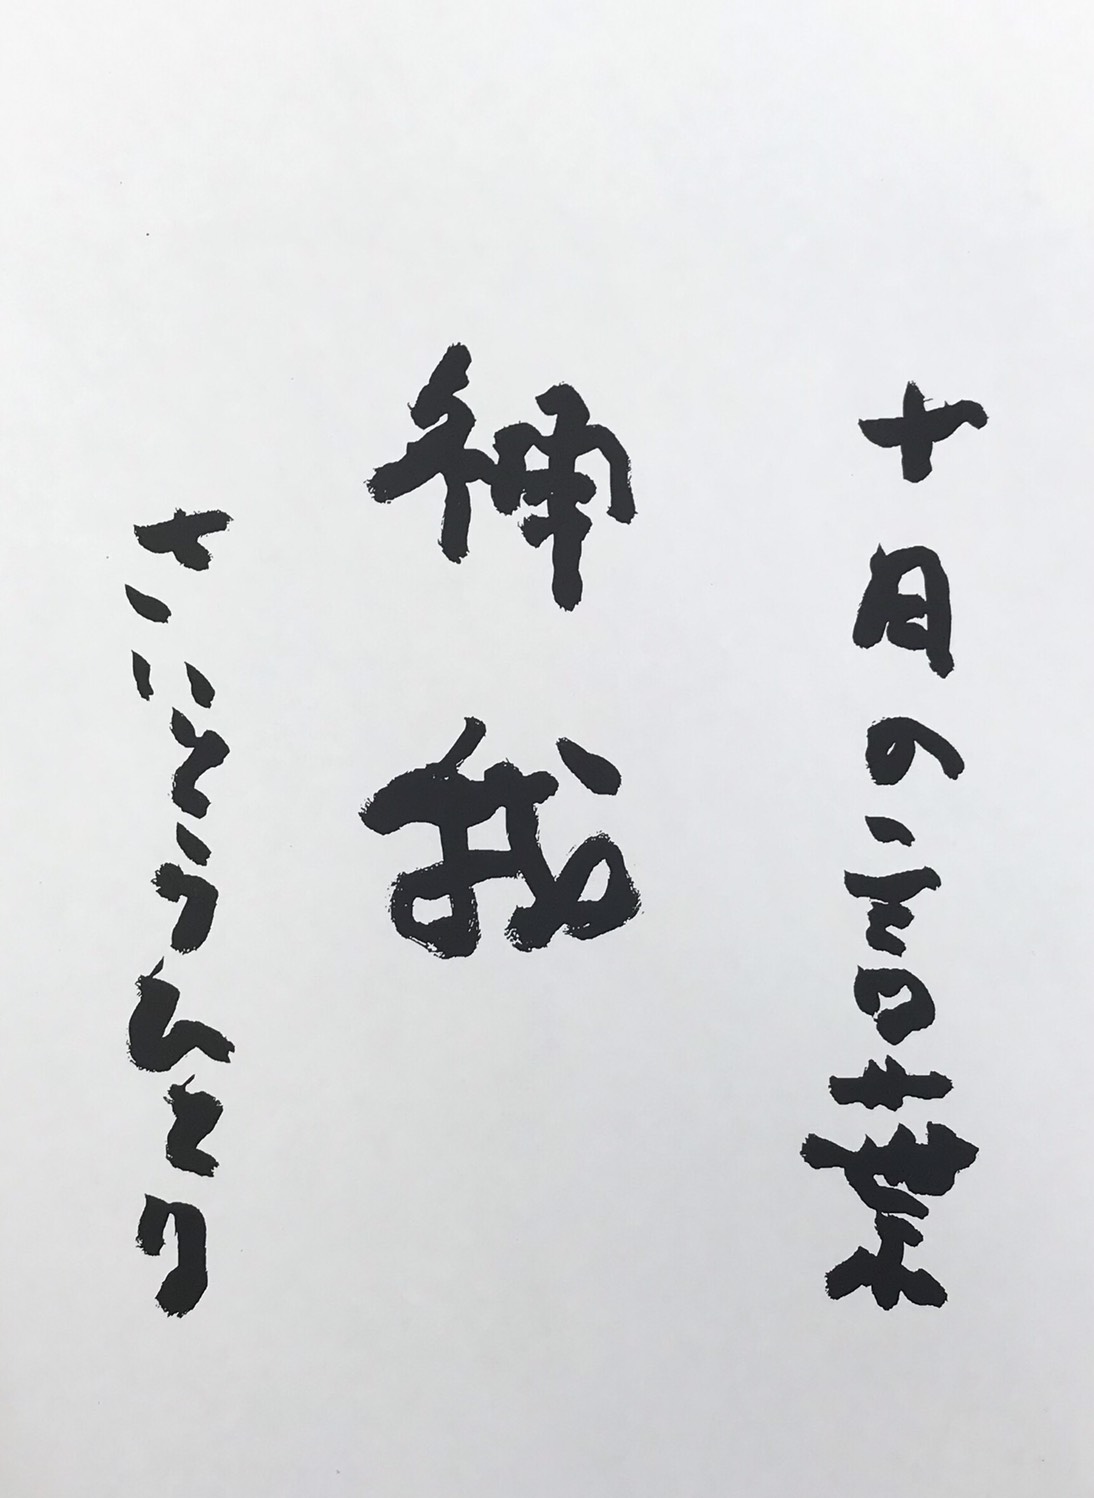 十月の言の葉
神我
さいとうひとり